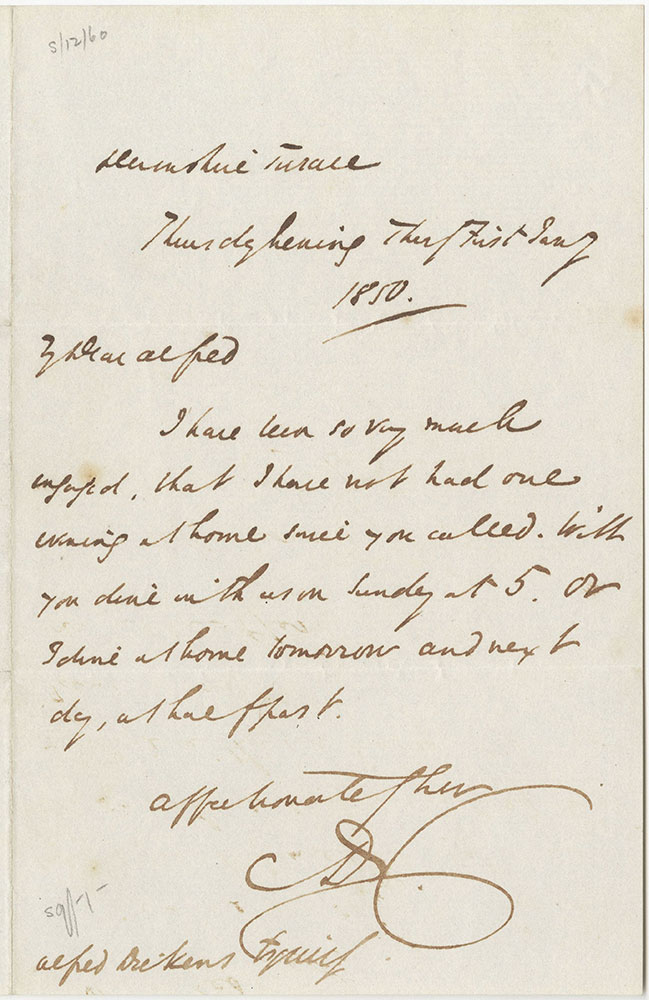 5/12/60
Devonshire Terrace
Thursday Evening Thirty First Jany
1850.
My Dear Alfred
I have been so very much
engaged, that I have not had one
evening at home since you called. Will
you dine with us on Sunday at 5. Or
I dine at home tomorrow and next
day, at half past.
Affectionately Ever
CD
Alfred Dickens Esquire